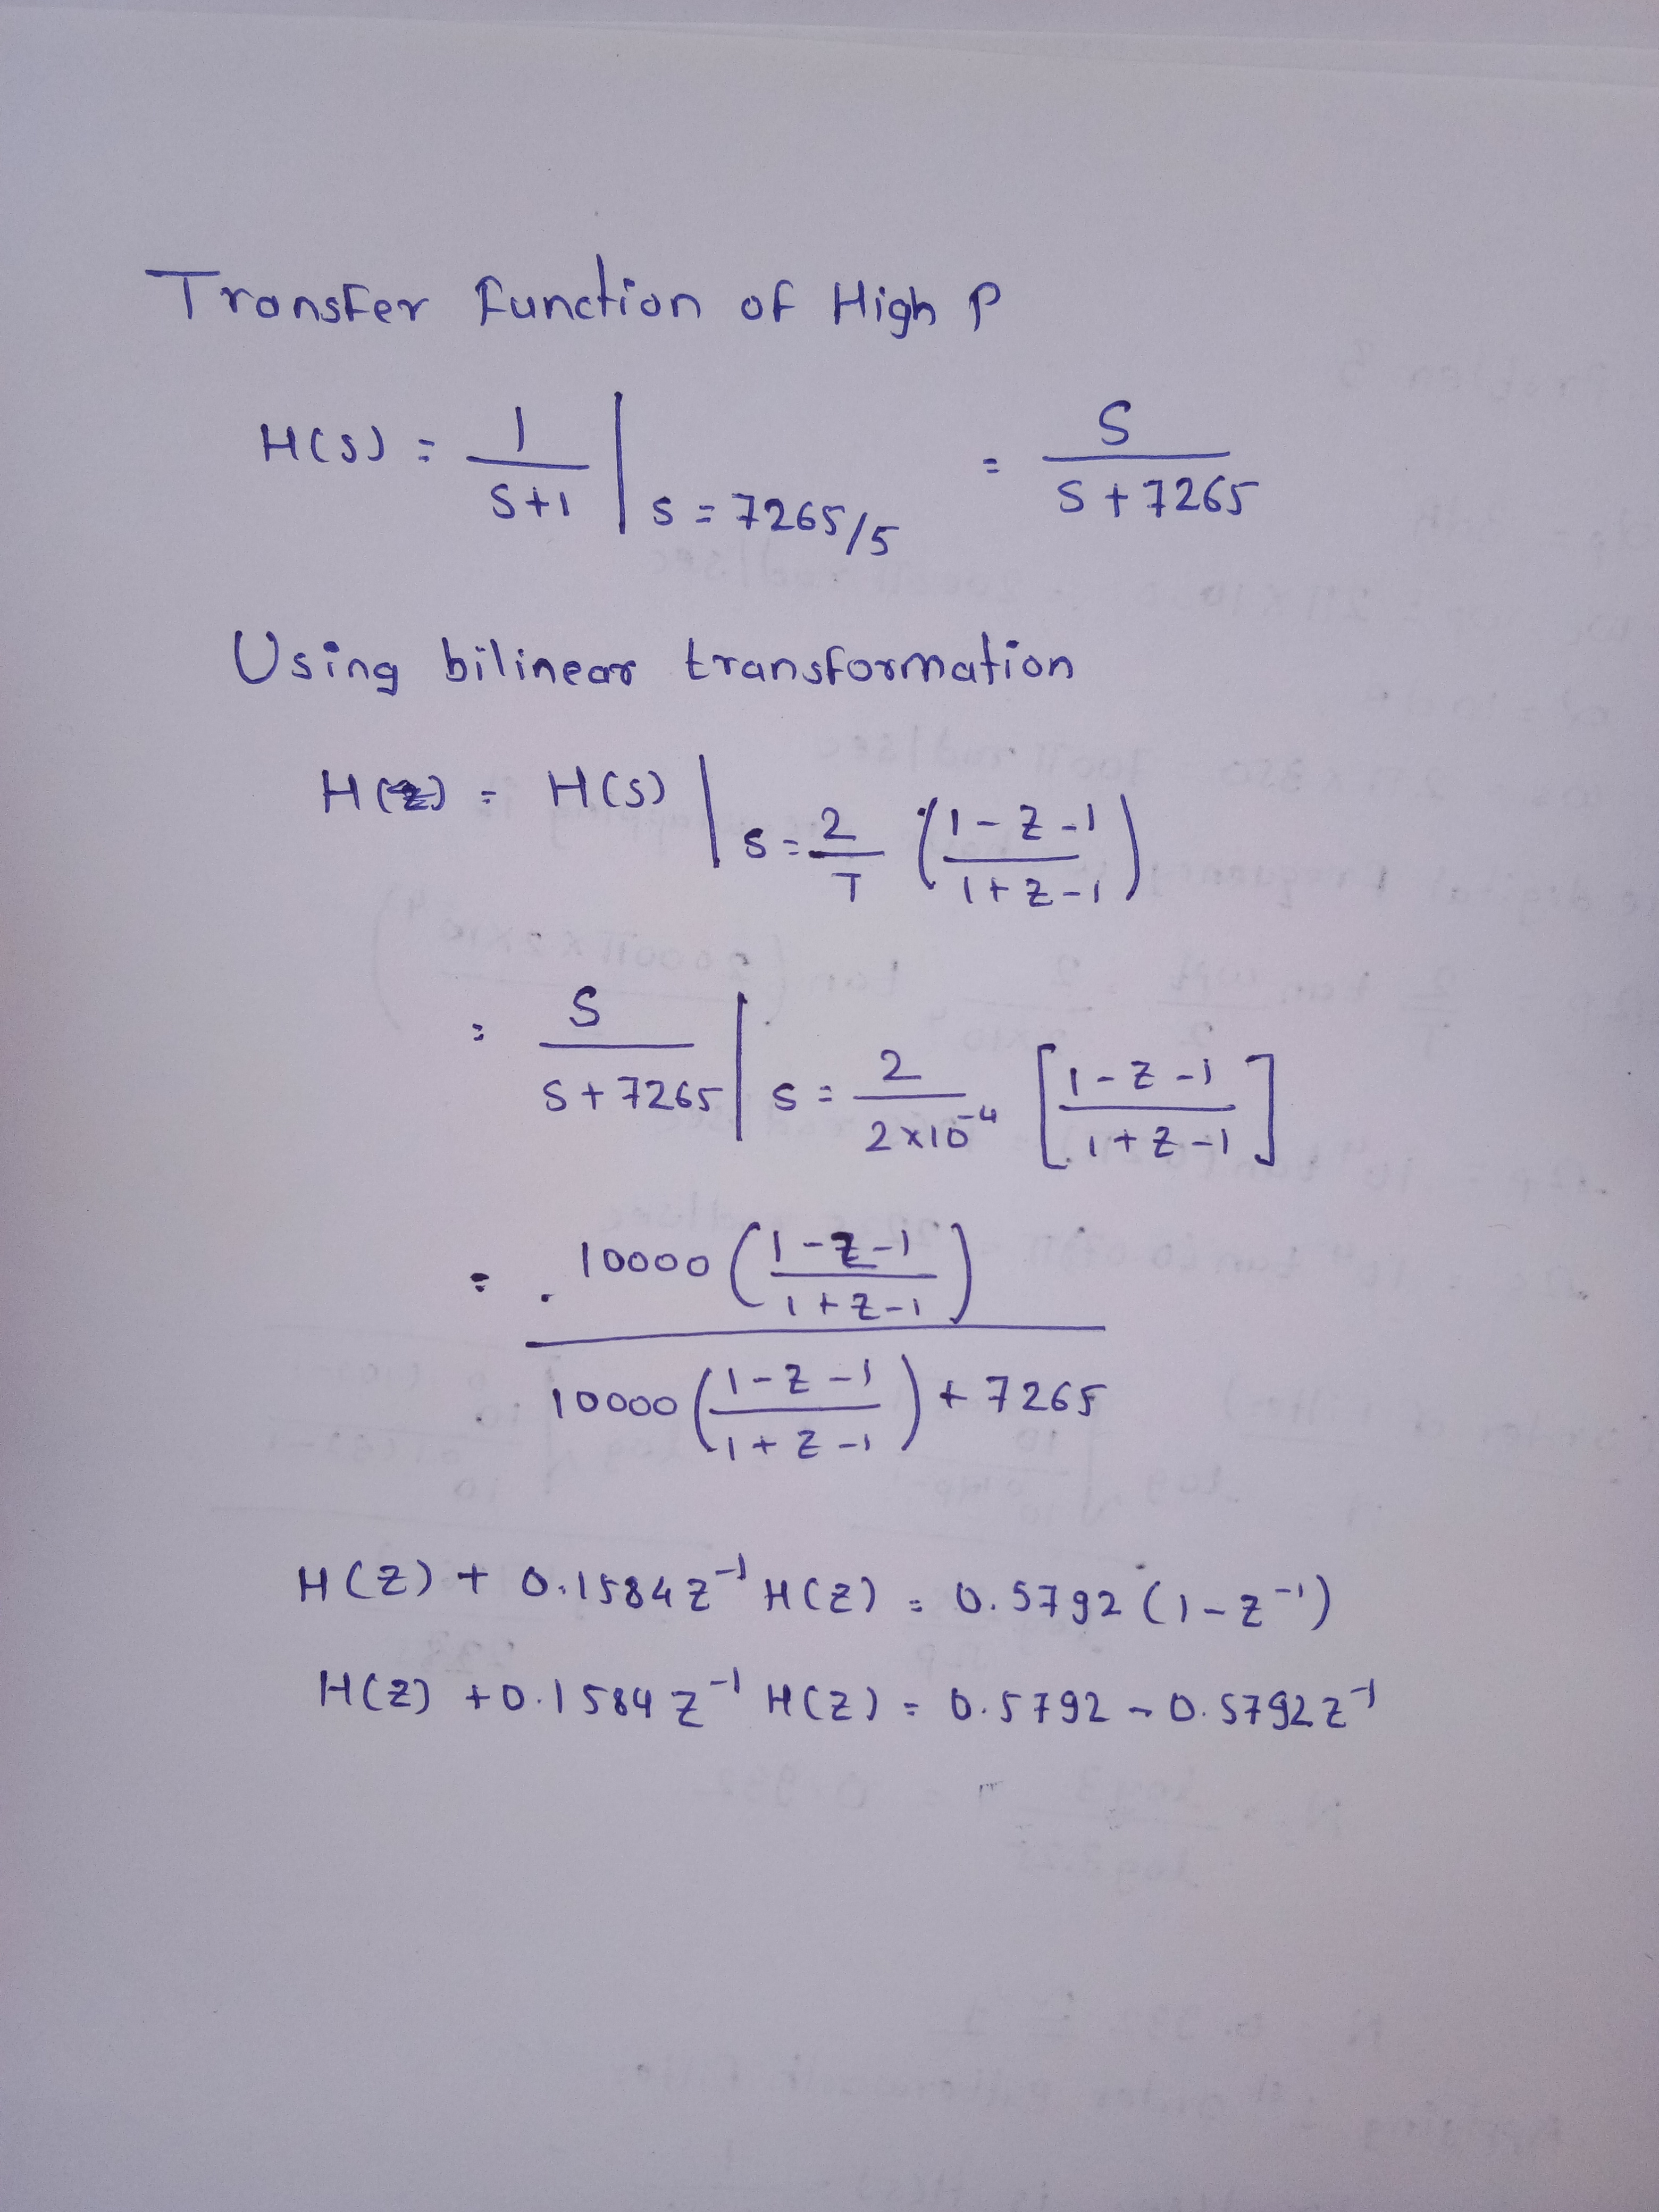 Transfer function of High P
H(s) = 1/(s+1) | s = 7265/5 = S/(S+7265)
Using bilinear transformation
H(z) = H(s) | s = 2/T ((1-z-1)/(1+z-1))
= S/(S+7265) | s = 2/(2×10^-4) [(1-z-1)/(1+z-1)]
= 10000((1-z-1)/(1+z-1)) / (10000((1-z-1)/(1+z-1)) + 7265)
H(z) + 0.1584z^-1 H(z) = 0.5792(1-z^-1)
H(z) + 0.1584z^-1 H(z) = 0.5792 - 0.5792z^-1